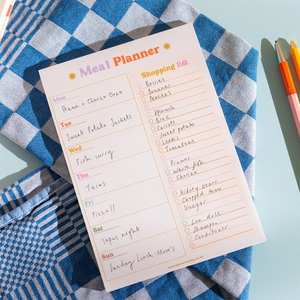 Meal Planner
Mon
Ham + Cheese Bake
Tue
Sweet Potato Jackets
Wed
Fish curry
Thu
Tacos
Fri
Pizza!!
Sat
Tapas night
Sun
Sunday lunch Mum's
Shopping list
Berries
Bananas
Peaches
Spinach
Carrots
Sweet potato
Leeks
Tomatoes
Prawns
White fish
Kidney beans
Chopped
Vinegar
Shampoo
Conditioner